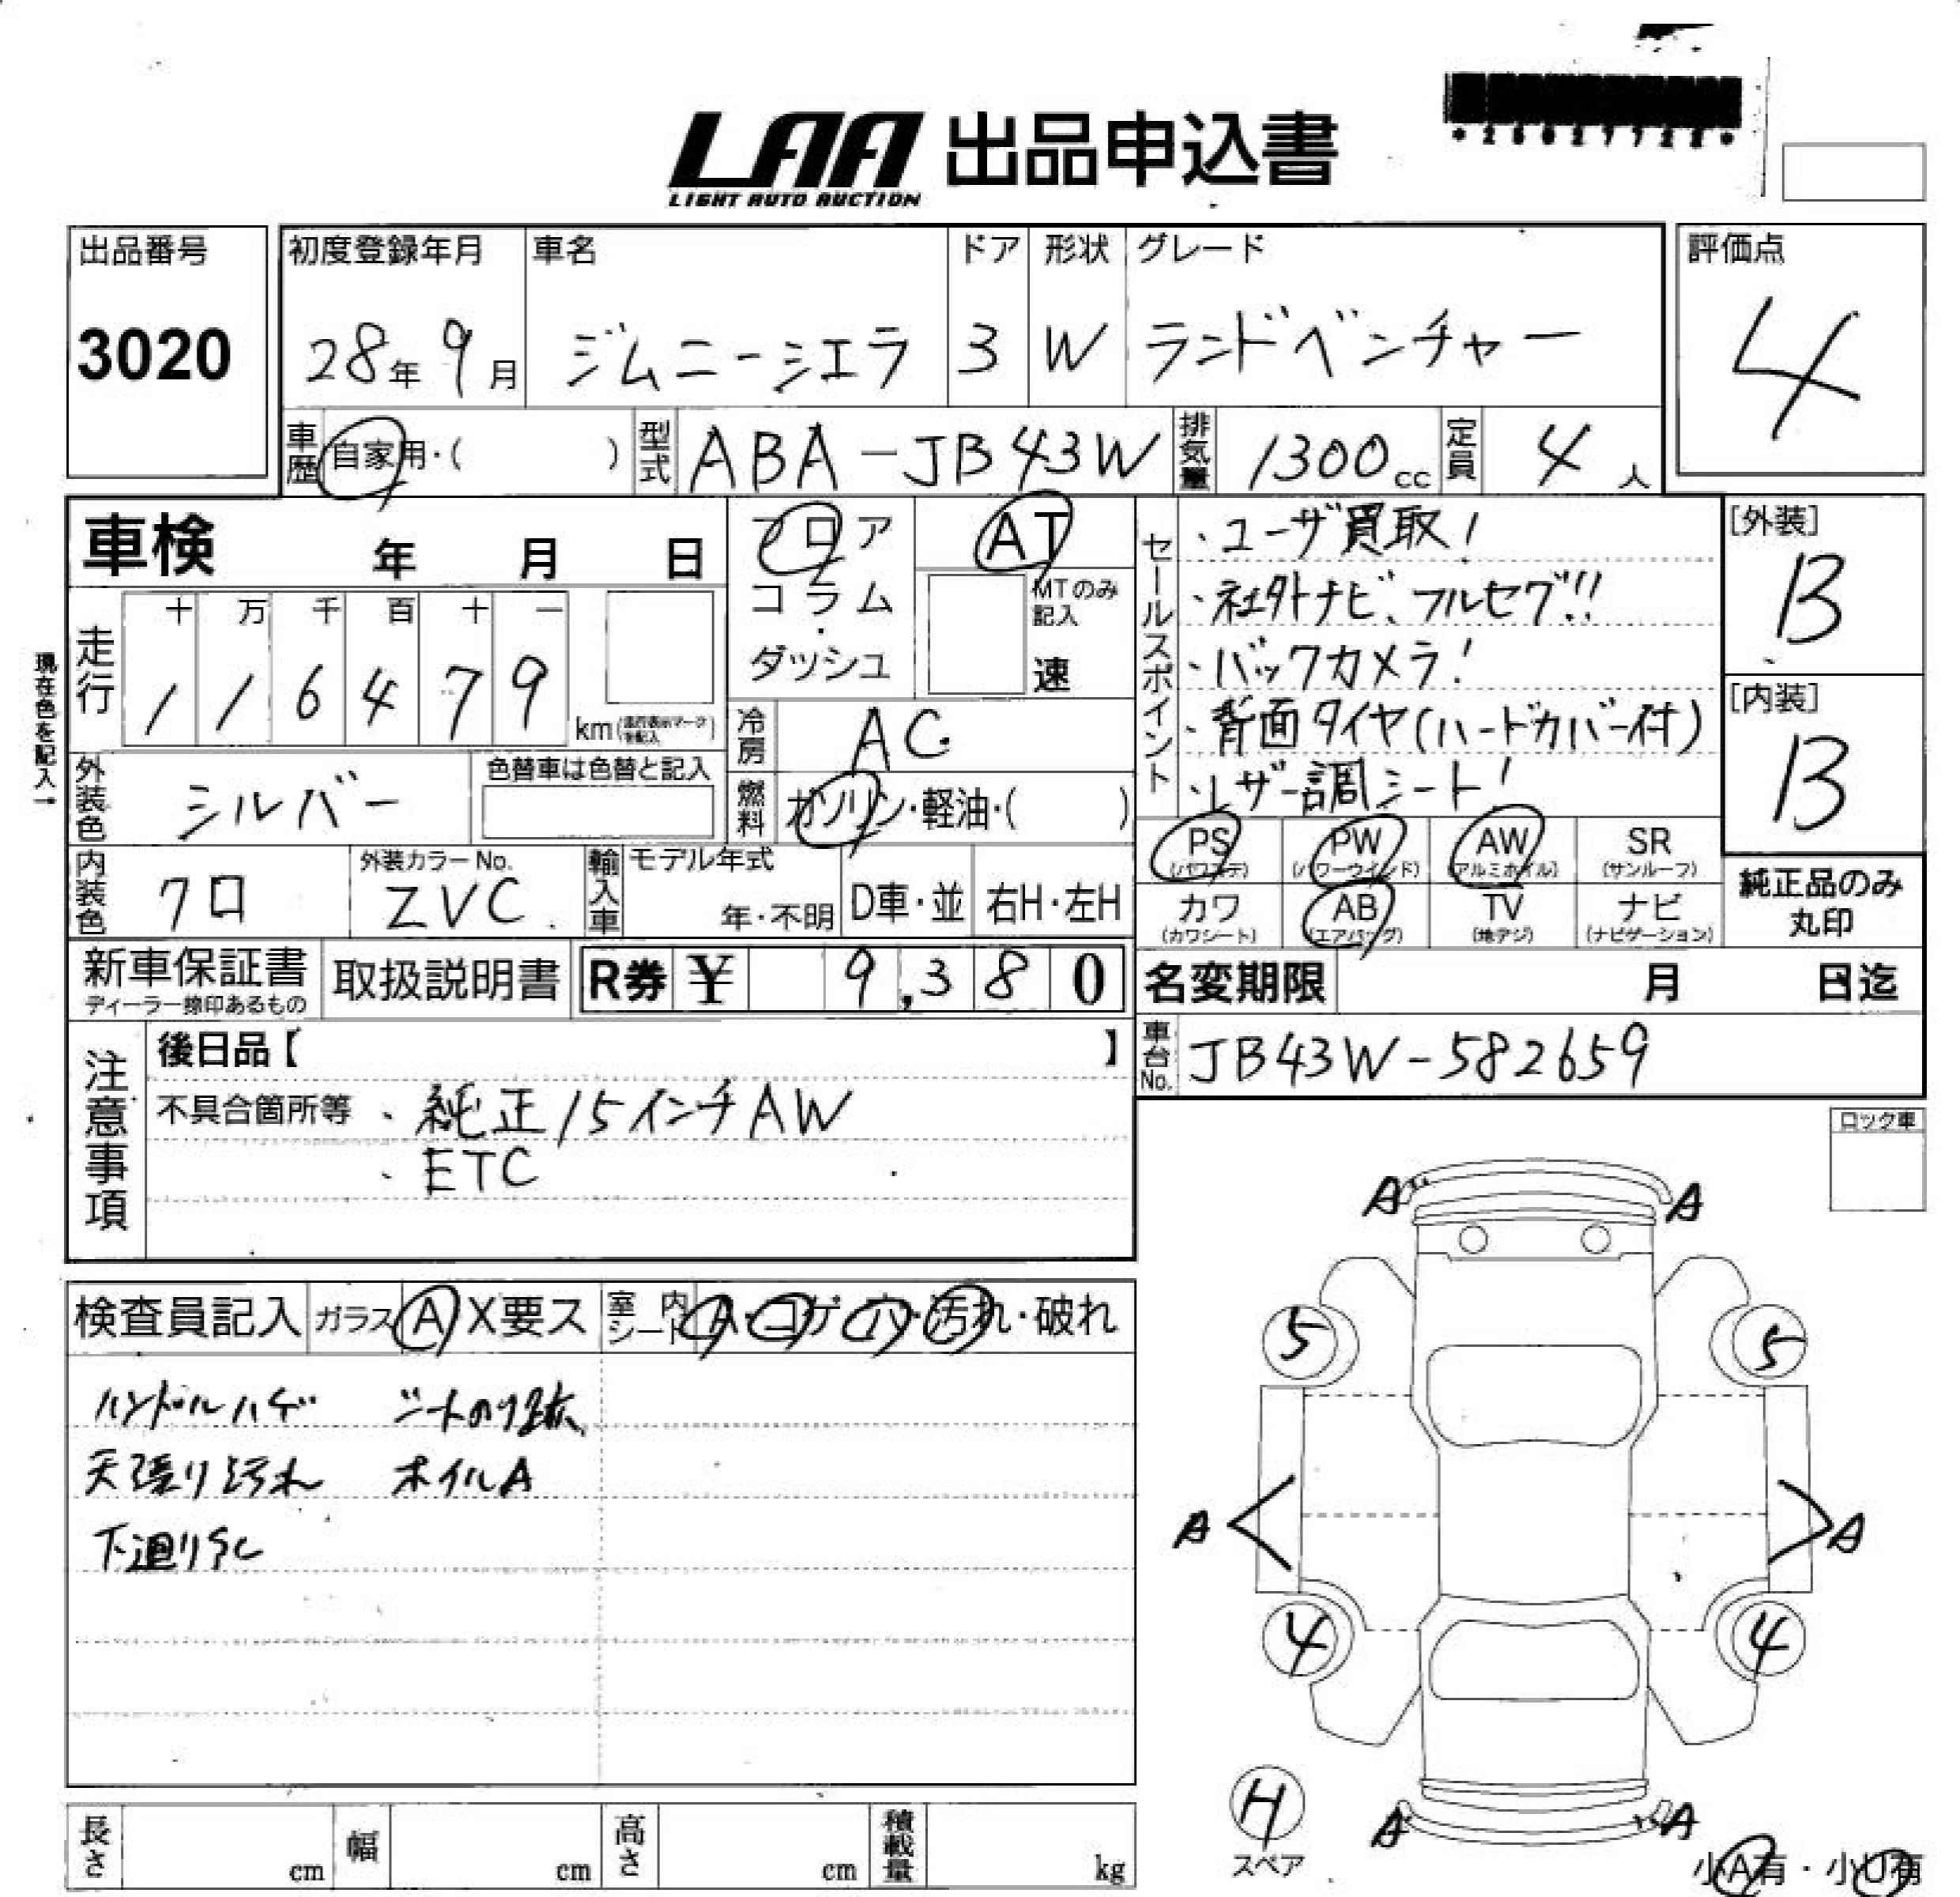 *25027722*
LAA 出品申込書
LIGHT AUTO AUCTION
出品番号
3020
初度登録年月
28年 9月
車名
ジムニーシエラ
ドア
3
形状
W
グレード
ランドベンチャー
評価点
4
車歴 自家用・( )
型式 ABA-JB43W
排気量 1300cc
定員 4人
車検 年 月 日
フロア
コラム
・
ダッシュ
AT
MTのみ
記入
速
セールスポイント
・ユーザ買取!
・社外ナビ、フルセグ!!
・バックカメラ!
・背面タイヤ(ハードカバー付)
・レザー調シート!
[外装]
B
[内装]
B
現在色を記入→
走行
十 万 千 百 十 一
1 1 6 4 7 9
km
冷房 AC
燃料 ガソリン・軽油・( )
外装色 シルバー
色替車は色替と記入
内装色 クロ
外装カラーNo.
ZVC
輸入車
モデル年式
年・不明
D車・並
右H・左H
PS
(パワステ)
PW
(パワーウインド)
AW
(アルミホイル)
SR
(サンルーフ)
カワ
(カワシート)
AB
(エアバッグ)
TV
(地デジ)
ナビ
(ナビゲーション)
純正品のみ
丸印
新車保証書
ディーラー捺印あるもの
取扱説明書
R券 ¥ 9,380
名変期限 月 日迄
車台No. JB43W-582659
注意事項
後日品【 】
不具合箇所等 、純正15インチAW
、ETC
ロック車
検査員記入 ガラス A X要ス 室内シート A・コゲ・穴・汚れ・破れ
ハンドルハゲ シートのり跡
天張り汚れ ホイルA
下廻り
A A
5 5
A A
4 4
H
スペア
A A
小A有・小U有
長さ cm
幅 cm
高さ cm
積載量 kg